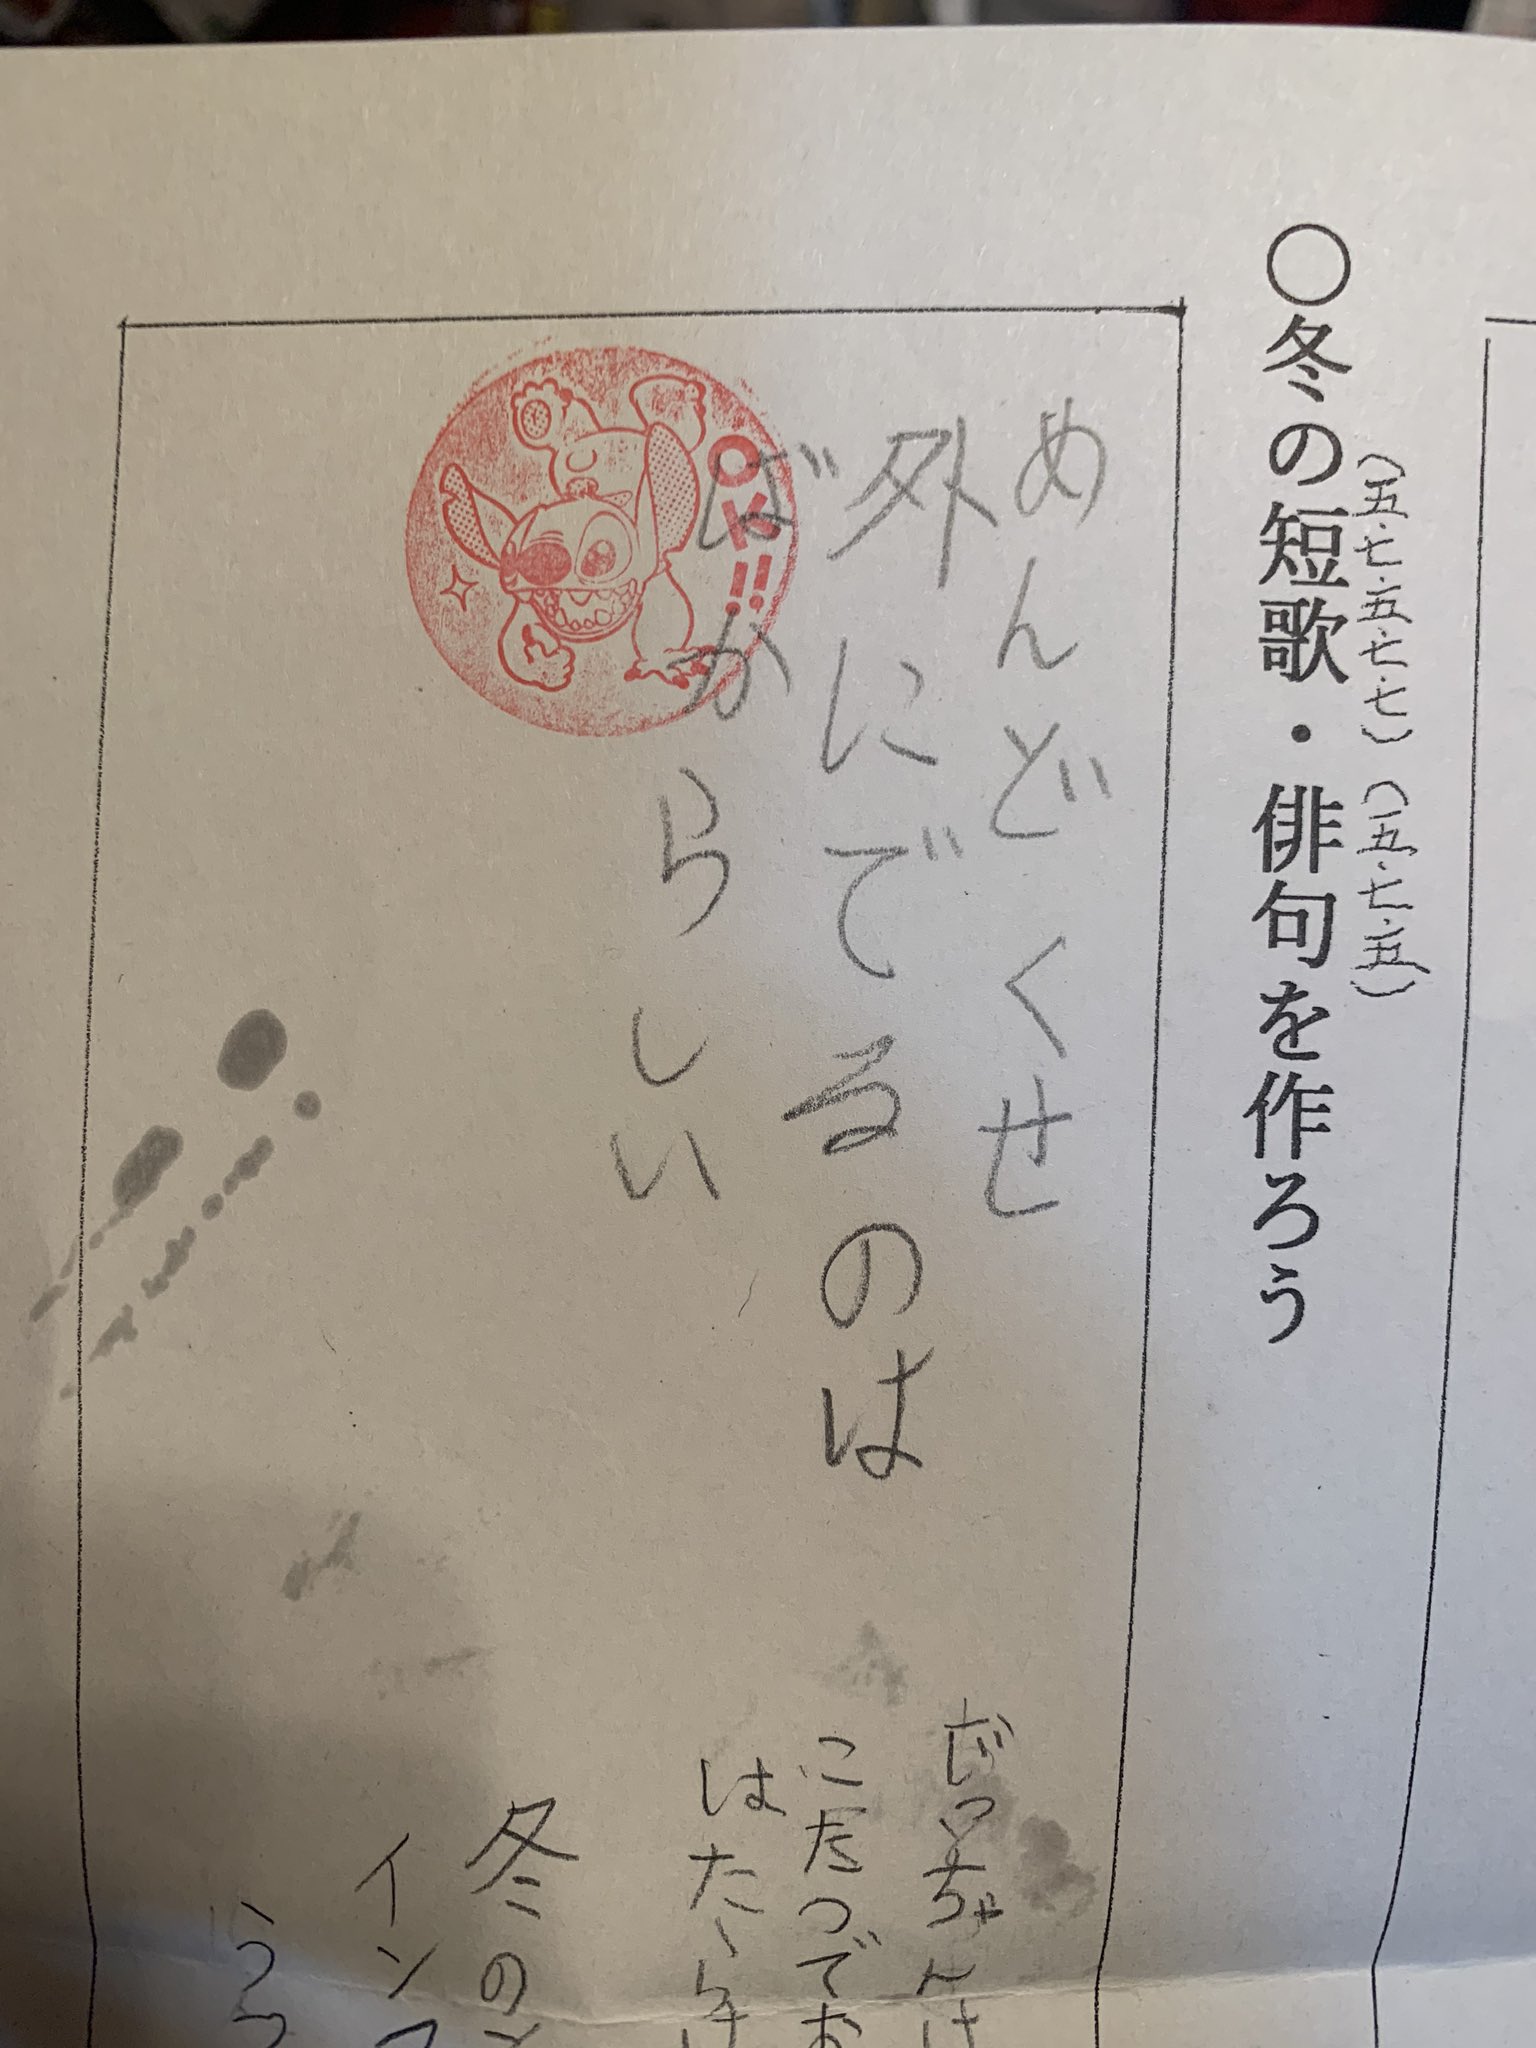 〇冬の短歌・俳句を作ろう
(五・七・五・七・七)(五・七・五)
めんどくせ
外にでるのは
ばからしい
OK!!
こたつでお
はたらけ
冬の
イン
うつ